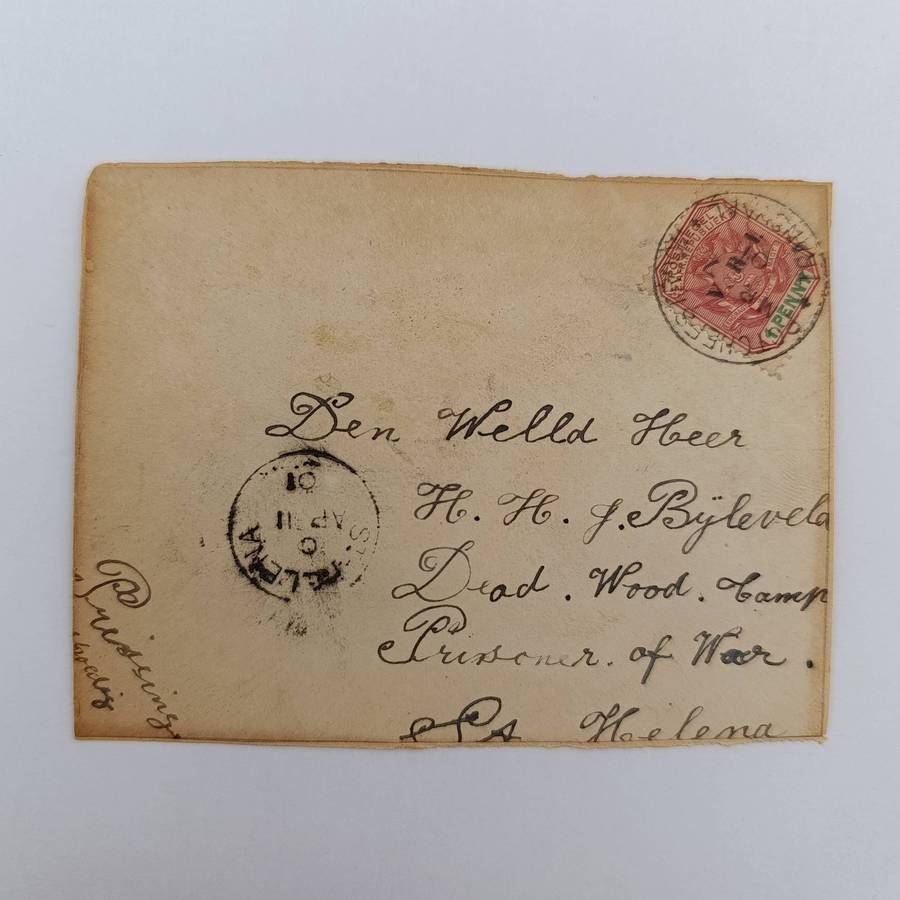 POSTZEGEL
1 PENNY
Den Welld Heer
H. H. J. Bÿleveld
Dead . Wood . Camp
Prissoner . of War .
St Helena
ST HELENA
AP 11
01